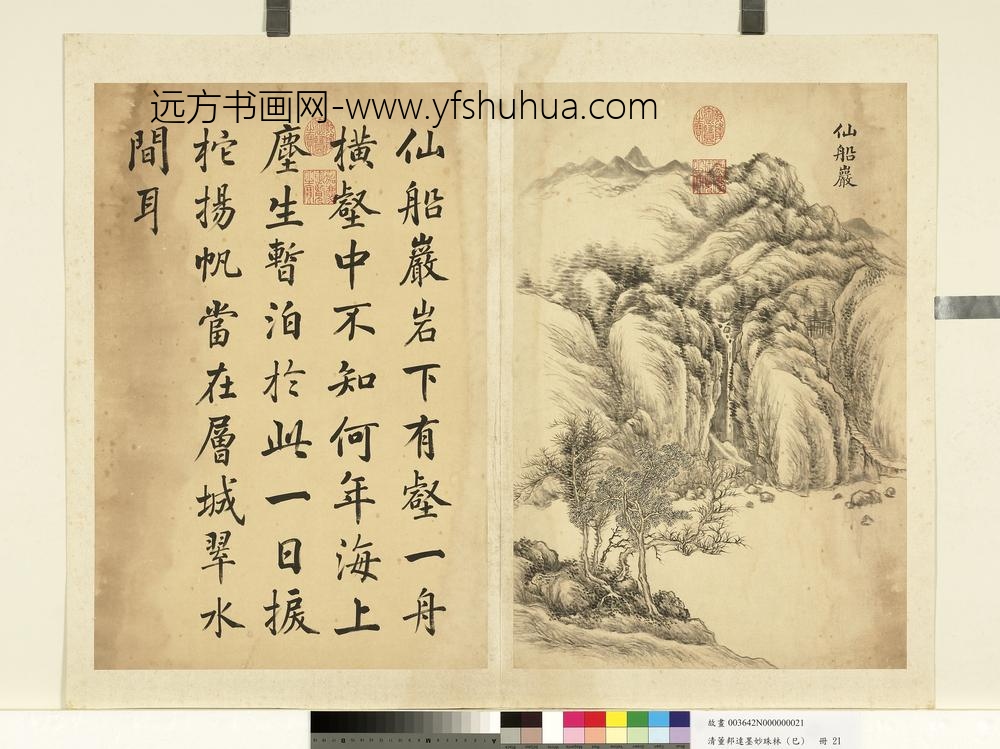 远方书画网-www.yfshuhua.com
仙船巖
仙船巖岩下有壑一舟
橫壑中不知何年海上
塵生暫泊於此一日捩
柁揚帆當在層城翠水
間耳
故畫 003642N000000021
清董邦達墨妙珠林（巳） 冊 21